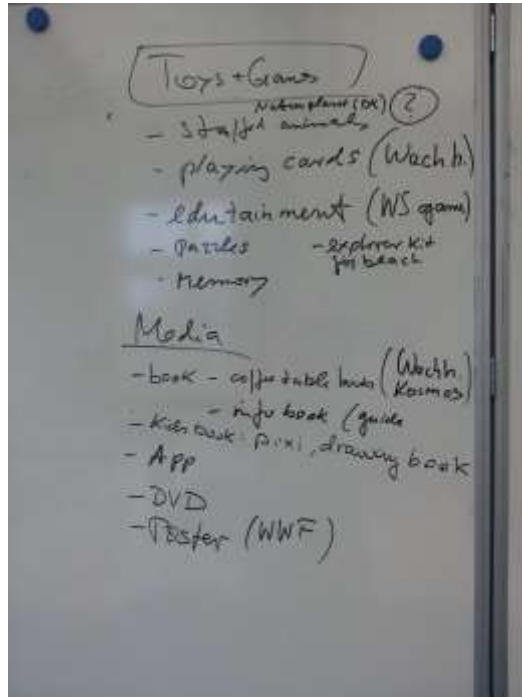 Toys + Games
Natureplanet (DK) ?
- Stuffed animals
- playing cards (Wachh.)
- edutainment (WS game)
- Puzzles - explorer kit
for beach
- Memory
Media
- book - coffee table book (Wachh.
Kosmos)
- info book / guide
- Kids book: pixi, drawing book
- App
- DVD
- Poster (WWF)